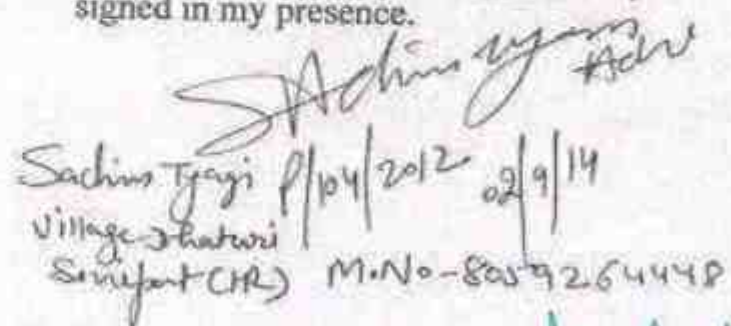 signed in my presence.
Sachin Tyagi Adv
Sachin Tyagi P/104/2012 02/9/14
Village
Sonipat (HR) M.No-8059264448